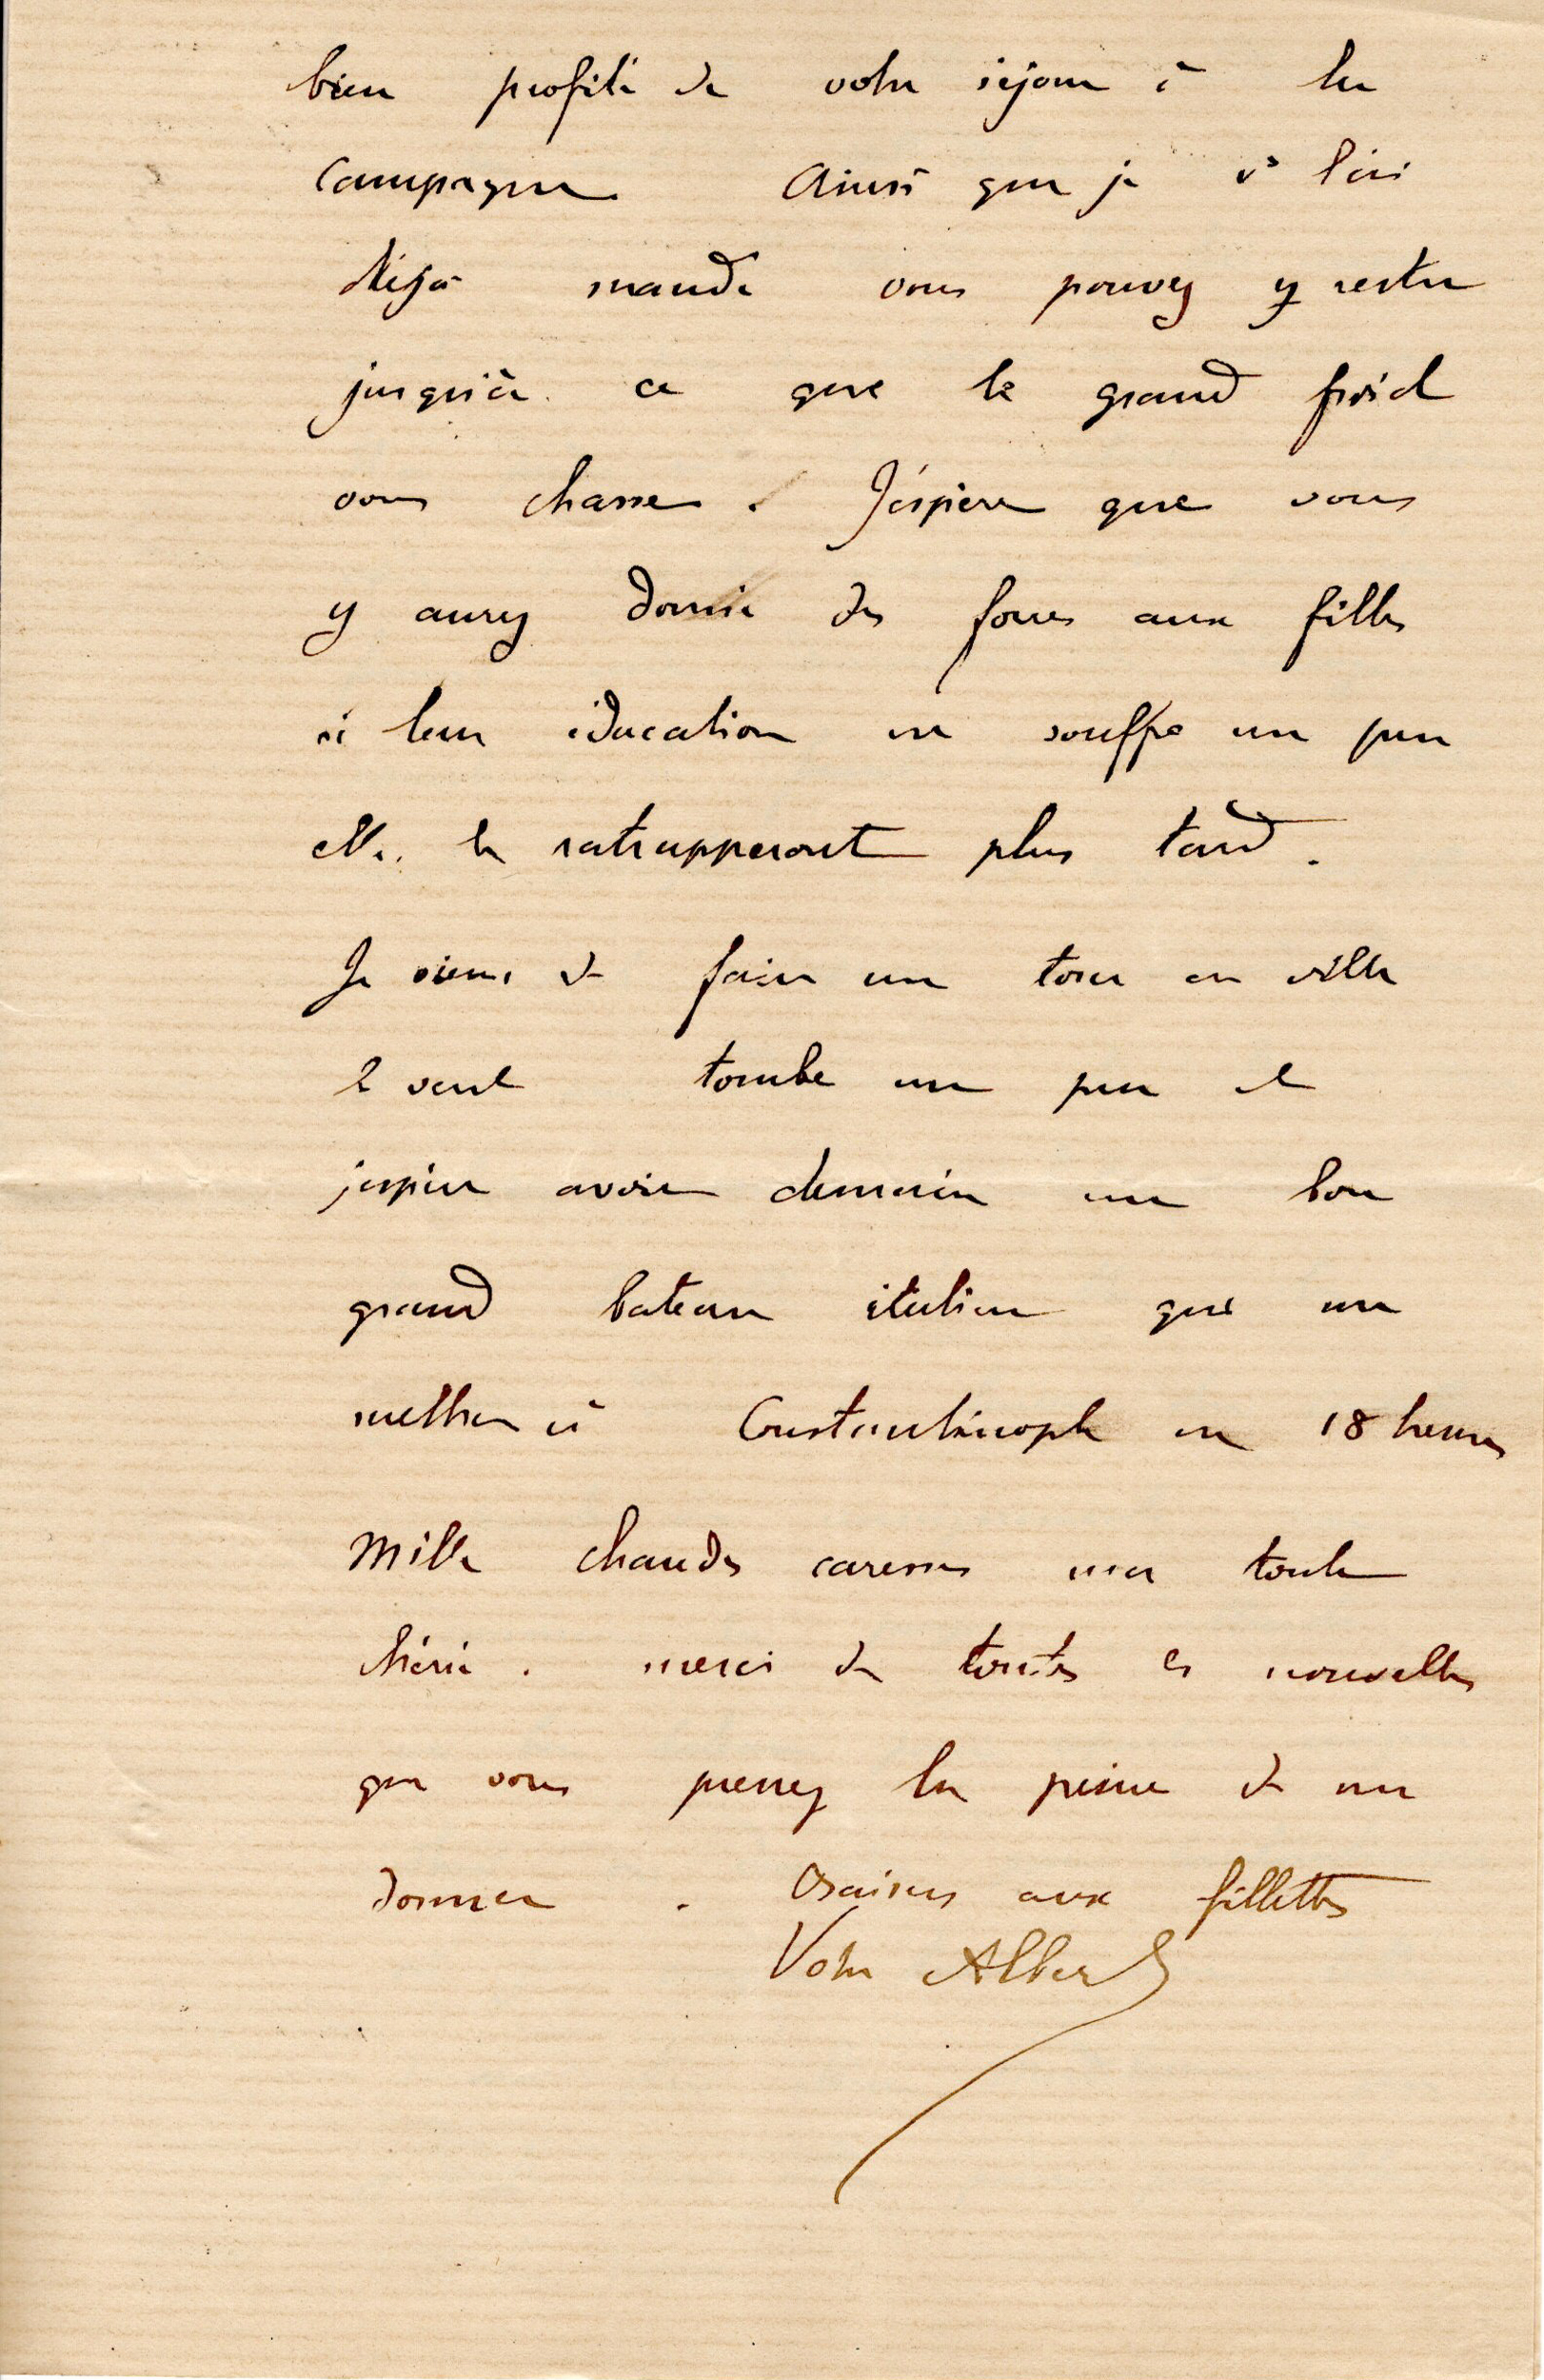 bien profité de votre séjour à la
campagne. Ainsi que je v[s] l'ai
déjà mandé vous pouvez y rester
jusqu'à ce que le grand froid
vous chasse. J'éspère que vous
y aurez donné des forces aux filles
si leur éducation en souffre un peu
elles le ratrapperont plus tard.
Je viens de faire un tour en ville
le vent tombe un peu et
j'espère avoir demain un bon
grand bateau italien qui me
mettra à Constantinople en 18 heures
Mille chaudes caresses ma toute
chérie. merci de toutes les nouvelles
que vous prenez la peine de me
donner. Baisers aux fillettes
Votre Albert